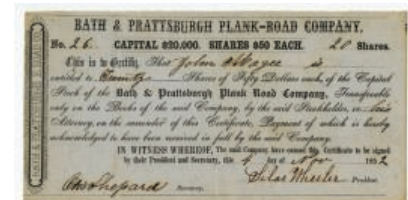 BATH & PRATTSBURGH PLANK-ROAD COMPANY.
No. 26. CAPITAL $20,000. SHARES $50 EACH. 20 Shares.
This is to Certify, That John Magee is
entitled to Twenty Shares of Fifty Dollars each, of the Capital
Stock of the Bath & Prattsburgh Plank Road Company, Transferable
only on the Books of the said Company, by the said Stockholder, or his
Attorney, on the surrender of this Certificate, Payment of which is hereby
acknowledged to have been received in full by the said Company.
IN WITNESS WHEREOF, The said Company have caused this Certificate to be signed
by their President and Secretary, this 4 day of Nov 1852
Shepard Secretary. Silas Wheeler President.
BATH & PRATTSBURGH